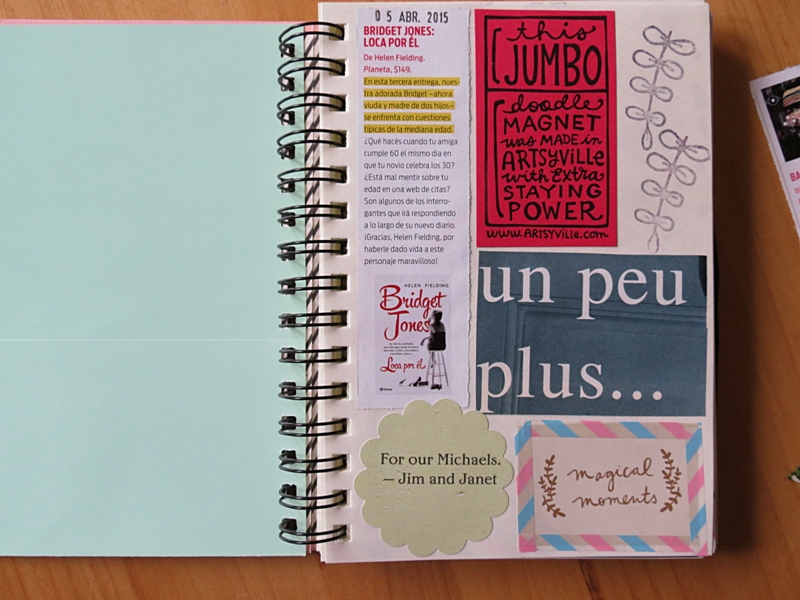 0 5 ABR. 2015
BRIDGET JONES:
LOCA POR ÉL
De Helen Fielding.
Planeta, $149.
En esta tercera entrega, nues-
tra adorada Bridget –ahora
viuda y madre de dos hijos–
se enfrenta con cuestiones
típicas de la mediana edad.
¿Qué hacés cuando tu amiga
cumple 60 el mismo día en
que tu novio celebra los 30?
¿Está mal mentir sobre tu
edad en una web de citas?
Son algunos de los interro-
gantes que irá respondiendo
a lo largo de su nuevo diario.
¡Gracias, Helen Fielding, por
haberle dado vida a este
personaje maravilloso!
HELEN FIELDING
Bridget
Jones
Loca por él
Planeta
this
JUMBO
doodle
MAGNET
was MADE in
ARTSYVILLE
with EXTRA
STAYING
POWER
www.ARTSYVILLE.com
un peu
plus...
For our Michaels.
– Jim and Janet
magical
moments
BA